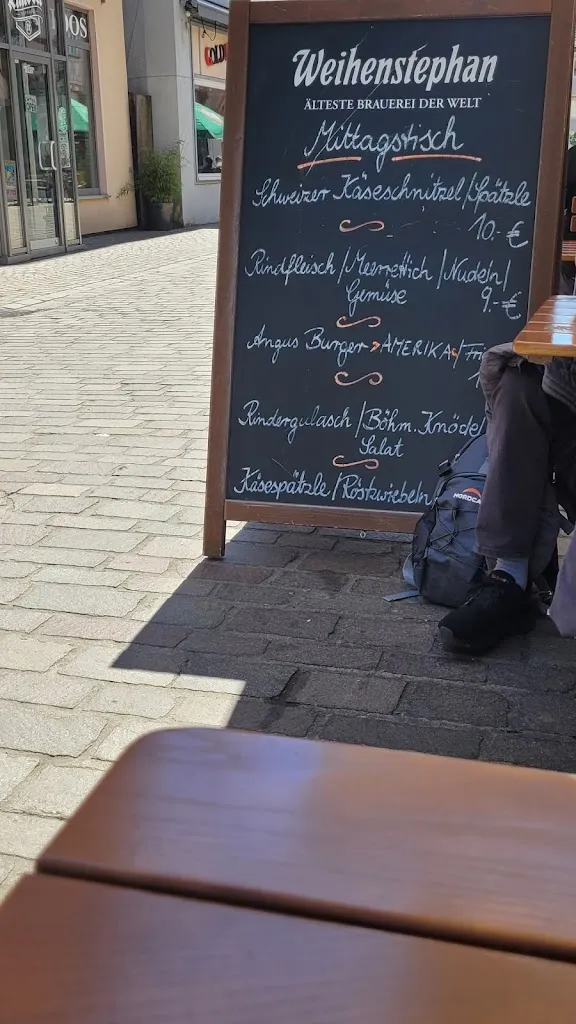 Weihenstephan
ÄLTESTE BRAUEREI DER WELT
Mittagstisch
Schweizer Käseschnitzel/Spätzle
10.-€
Rindfleisch/Meerrettich/Nudeln/
Gemüse 9.-€
Angus Burger »AMERIKA«/
Rindergulasch/Böhm. Knödel
Salat
Käsespätzle/Röstzwiebeln